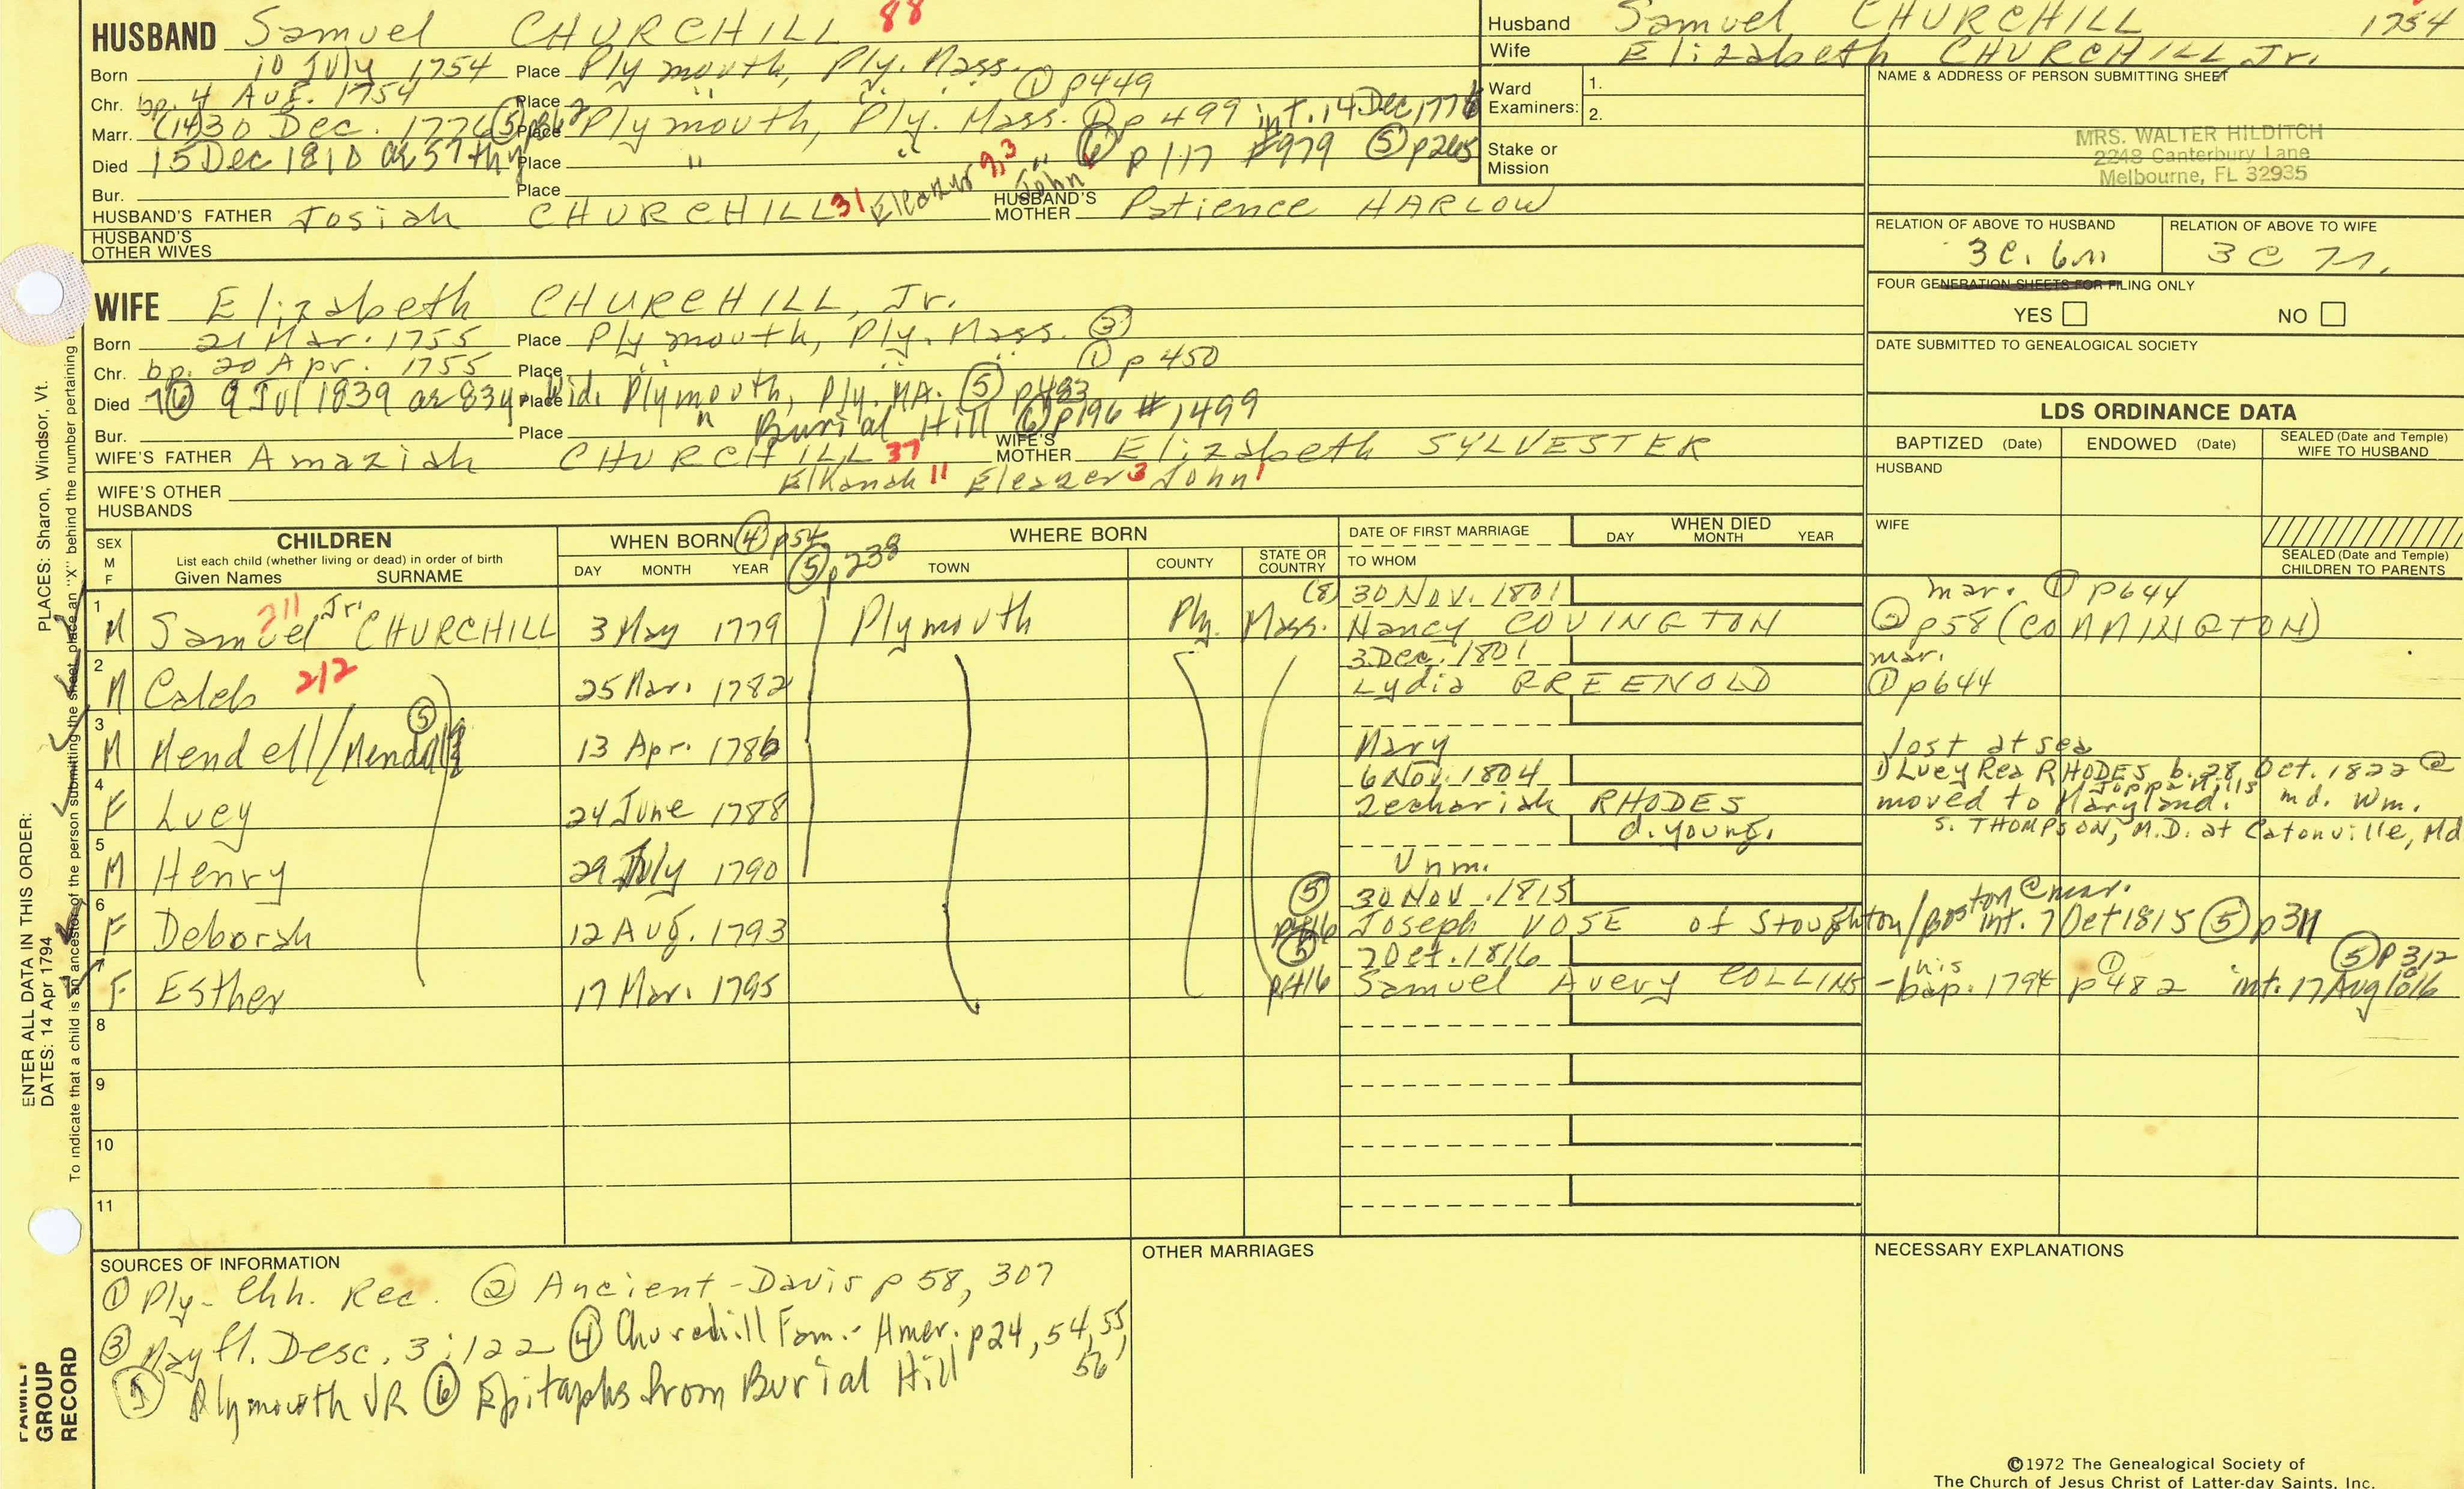 HUSBAND Samuel CHURCHILL 88
Born 10 July 1754 Place Plymouth, Ply. Mass.
Chr. bp. 4 Aug. 1754 Place " " " ① p449
Marr. (14) 30 Dec. 1776 ⑤ Place Plymouth, Ply. Mass. ① p 499 int. 14 Dec 1776
Died 15 Dec 1810 ae 57th y Place " " " ⑥ p 117 #979 ⑤ p265
Bur. Place
HUSBAND'S FATHER Josiah CHURCHILL 31 Eleanur 9,3 John 1 HUSBAND'S MOTHER Patience HARLOW
HUSBAND'S OTHER WIVES
Husband Samuel CHURCHILL 1754
Wife Elizabeth CHURCHILL, Jr.
Ward Examiners: 1.
2.
Stake or Mission
NAME & ADDRESS OF PERSON SUBMITTING SHEET
MRS. WALTER HILDITCH
2248 Canterbury Lane
Melbourne, FL 32935
RELATION OF ABOVE TO HUSBAND RELATION OF ABOVE TO WIFE
3 C. 6 m 3 C 7 r.
FOUR GENERATION SHEETS FOR FILING ONLY
YES NO
DATE SUBMITTED TO GENEALOGICAL SOCIETY
WIFE Elizabeth CHURCHILL, Jr.
Born 21 Mar. 1755 Place Plymouth, Ply. Mass. ③
Chr. bp. 20 Apr. 1755 Place " " " ① p 450
Died ⑥ 9 Jul 1839 ae 83y Place Wid. Plymouth, Ply. MA. ⑤ p483
Bur. Place " Burial Hill ⑥ p196 #1499
WIFE'S FATHER Amaziah CHURCHILL 37 WIFE'S MOTHER Elizabeth SYLVESTER
Elkanah 11 Eleazer 3 John 1
WIFE'S OTHER HUSBANDS
LDS ORDINANCE DATA
BAPTIZED (Date) ENDOWED (Date) SEALED (Date and Temple) WIFE TO HUSBAND
HUSBAND
WIFE
SEALED (Date and Temple) CHILDREN TO PARENTS
SEX M F
CHILDREN
List each child (whether living or dead) in order of birth
Given Names SURNAME
WHEN BORN ④ p54
DAY MONTH YEAR ⑤ p238
WHERE BORN
TOWN COUNTY STATE OR COUNTRY
DATE OF FIRST MARRIAGE
TO WHOM
WHEN DIED
DAY MONTH YEAR
1 M Samuel Jr. CHURCHILL 211 3 May 1779 Plymouth Ply. Mass. (8) 30 Nov. 1801 Nancy COVINGTON mar. ① p644 ② p58 (CONNINGTON)
2 M Caleb 212 25 Mar. 1782 3 Dec. 1801 Lydia GREENOLD mar. ① p644
3 M Mendell/Mendall ⑤ 13 Apr. 1786 Mary lost at sea
4 F Lucy 24 June 1788 6 Nov. 1804 Zechariah RHODES ① Lucy Rea RHODES b. 28 Oct. 1822 @ Joppa Mills moved to Maryland. md. Wm. S. THOMPSON, M.D. at Catonville, Md
d. young.
5 M Henry 29 July 1790 Unm.
6 F Deborah 12 Aug. 1793 ⑤ p416 30 Nov. 1815 Joseph VOSE of Stoughton/Boston @ mar. int. 7 Oct 1815 ⑤ p311
7 F Esther 17 Mar. 1795 ⑤ p416 7 Oct. 1816 Samuel Avery COLLINS - his bap. 1794 ① p482 int. 17 Aug 1816 ⑤ p312
8
9
10
11
SOURCES OF INFORMATION
① Ply. Chh. Rec. ② Ancient-Davis p 58, 307
③ Mayfl. Desc. 3:122 ④ Churchill Fam.- Amer. p24, 54, 55, 56
⑤ Plymouth VR ⑥ Epitaphs from Burial Hill
OTHER MARRIAGES
NECESSARY EXPLANATIONS
©1972 The Genealogical Society of
The Church of Jesus Christ of Latter-day Saints, Inc.
ENTER ALL DATA IN THIS ORDER:
DATES: 14 Apr 1794
PLACES: Sharon, Windsor, Vt.
To indicate that a child is an ancestor of the person submitting the sheet, place an "X" behind the number pertaining
FAMILY GROUP RECORD